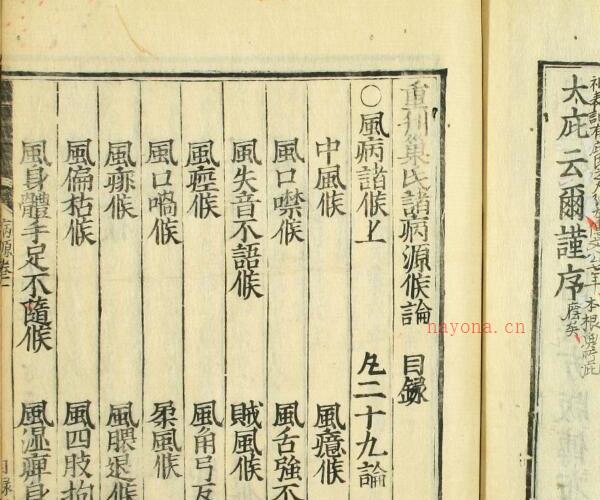 大庇云爾謹序
重刊巢氏諸病源候論 目録
○風病諸候上 凡二十九論
中風候 風癔候
風口噤候 風舌強不
風失音不語候 賊風候
風痙候 風角弓反
風口喎候 柔風候
風痱候 風腲退候
風偏枯候 風四肢拘
風身體手足不隨候 風濕痺身
病源卷一
目录
nayona.cn